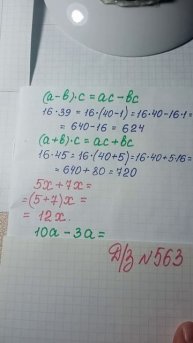 (a-в)·c = ac-вc
16·39 = 16·(40-1)=16·40-16·1=
= 640-16 = 624
(a+в)·c = ac+вc
16·45 = 16·(40+5)=16·40+5·16=
= 640+80=720
5x+7x=
=(5+7)x=
= 12x
10a-3a=
Д/з №563